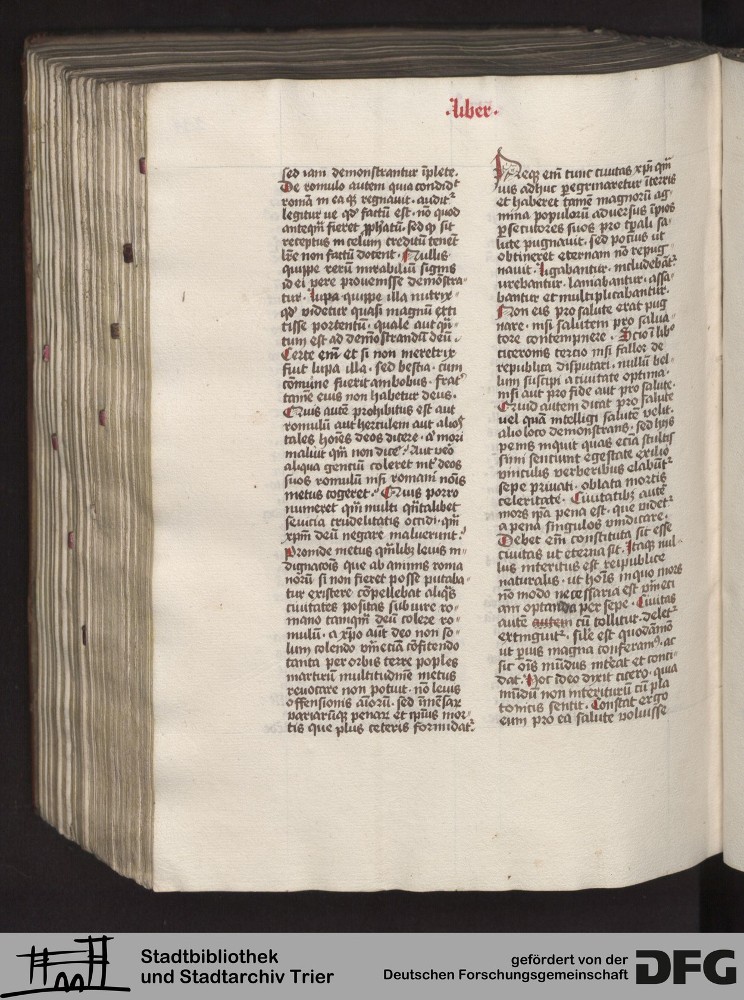 ·liber·
sed iam demonstrantur īplete.
De romulo autem quia condidᵗ
romā in eaqꝫ regnauit · auditᷣ
legitur ue qd' factū est · nō quod
anteqm̄ fieret ꝓphatū · sed qp sit
receptus in celum creditū tenēt
lr̄e non factū docent · Nullis
quippe rerū mirabiliū signis
id ei vere prouenisse demōstra-
tur · lupa quippe illa nutryx-
qd' videtur quasi magnū exti
tisse portentū · quale aut qm̄-
tum est ad demōstrandū deū-
Certe em̄ et si non meretrix
fuit lupa illa · sed bestia · cum
cōmune fuerit ambobus · fratᷣ
tamē eius non habetur deus ·
Quis autē prohibitus est aut
romulū aut herculem aut alios
tales hoīes deos dicere · a mori
maluit qm̄ non dicē · Aut v'o
aliqua gentiū coleret int' deos
suos romulū nisi romani nōis
metus cogeret · Quis porro
numeret qm̄ multi qn̄talibet
seuicia crudelitatis occidi · qm̄
xpm̄ deū negare maluerunt ·
Proinde metus qm̄libꝫ leuis in-
dignacōis que ab animis roma
norū si non fieret posse putaba-
tur existere cōpellebat aliqs
ciuitates positas sub iure ro-
mano tamqm̄ deū colere ro-
mulū · a xp̄o aūt deo non so-
lum colendo vm̄eciā cōfitendo
tanta per orbis terre poples
martirū multitudinē metus
reuocare non potuit · nō leuis
offensionis aīorū · sed īmēsar
variarūqꝫ penar et ipīus mor-
tis que plus ceteris formidatᷣ.
Neqꝫ em̄ tunc ciuitas xpī qm̄
uis adhuc pegrinaretur īterris
et haberet tamē magnorū ag-
mina populorū aduersus īpios
ꝑsecutores suos pro tꝑali sa-
lute pugnauit · sed pocius ut
obtineret eternam nō repug-
nauit · ligabantur · includebātᷣ
urebantur · laniabantur · assa-
bantur et multiplicabantur ·
Non eis pro salute erat pug
nare · nisi salutem pro salua-
tore contempnere · Scio ī libº
ciceronis tercio nisi fallor de
republica disputari · nullū bel-
lum suscipi a ciuitate optima ·
nisi aut pro fide aut pro salute ·
Quid autem dicat pro salute
vel quā intelligi salutē velit ·
alio loco demonstrans · sed hys
penis inquit quas eciā stulti
simi senciunt egestate exilio
vinculis verberibus elabūtᷣ
sepe priuati · oblata mortis
celeritate · Ciuitatibꝫ autē
mors ip̄a pena est · que videtᷣ
a pena singulos vindicare ·
Debet em̄ constituta sic esse
ciuitas ut eterna sit · Itaqꝫ nul-
lus interitus est reipublice
naturalis · ut hoīs inquo mors
nō modo necessaria est vm̄eci
am optanda per sepe · Ciuitas
autē autem cū tollitur · deletᷣ
extinguitᷣ · sile est quodāmō
ut ꝑuis magna conferamº · ac
sic oīs mūdus intreat et conci-
dat · Hoc ideo dixit cicero · quia
mūdū non interiturū cū pla
tonicis sentit · Constat ergo
eum pro ea salute voluisse
Stadtbibliothek
und Stadtarchiv Trier
gefördert von der
Deutschen Forschungsgemeinschaft
DFG